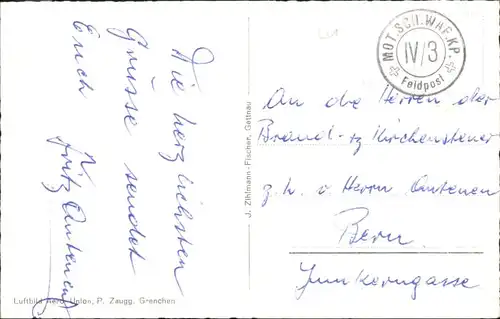 Die herzlichsten
Grüsse sendet
Euch
Fritz Antenen
Luftbild Aero Union, P. Zaugg, Grenchen
J. Zihlmann-Fischer, Gettnau
MOT. SCH. WAF. KP.
IV/3
Feldpost
An die Herren der
Brand- Kirchensteuer
z. h. v Herrn Antenen
Bern
Junkerngasse